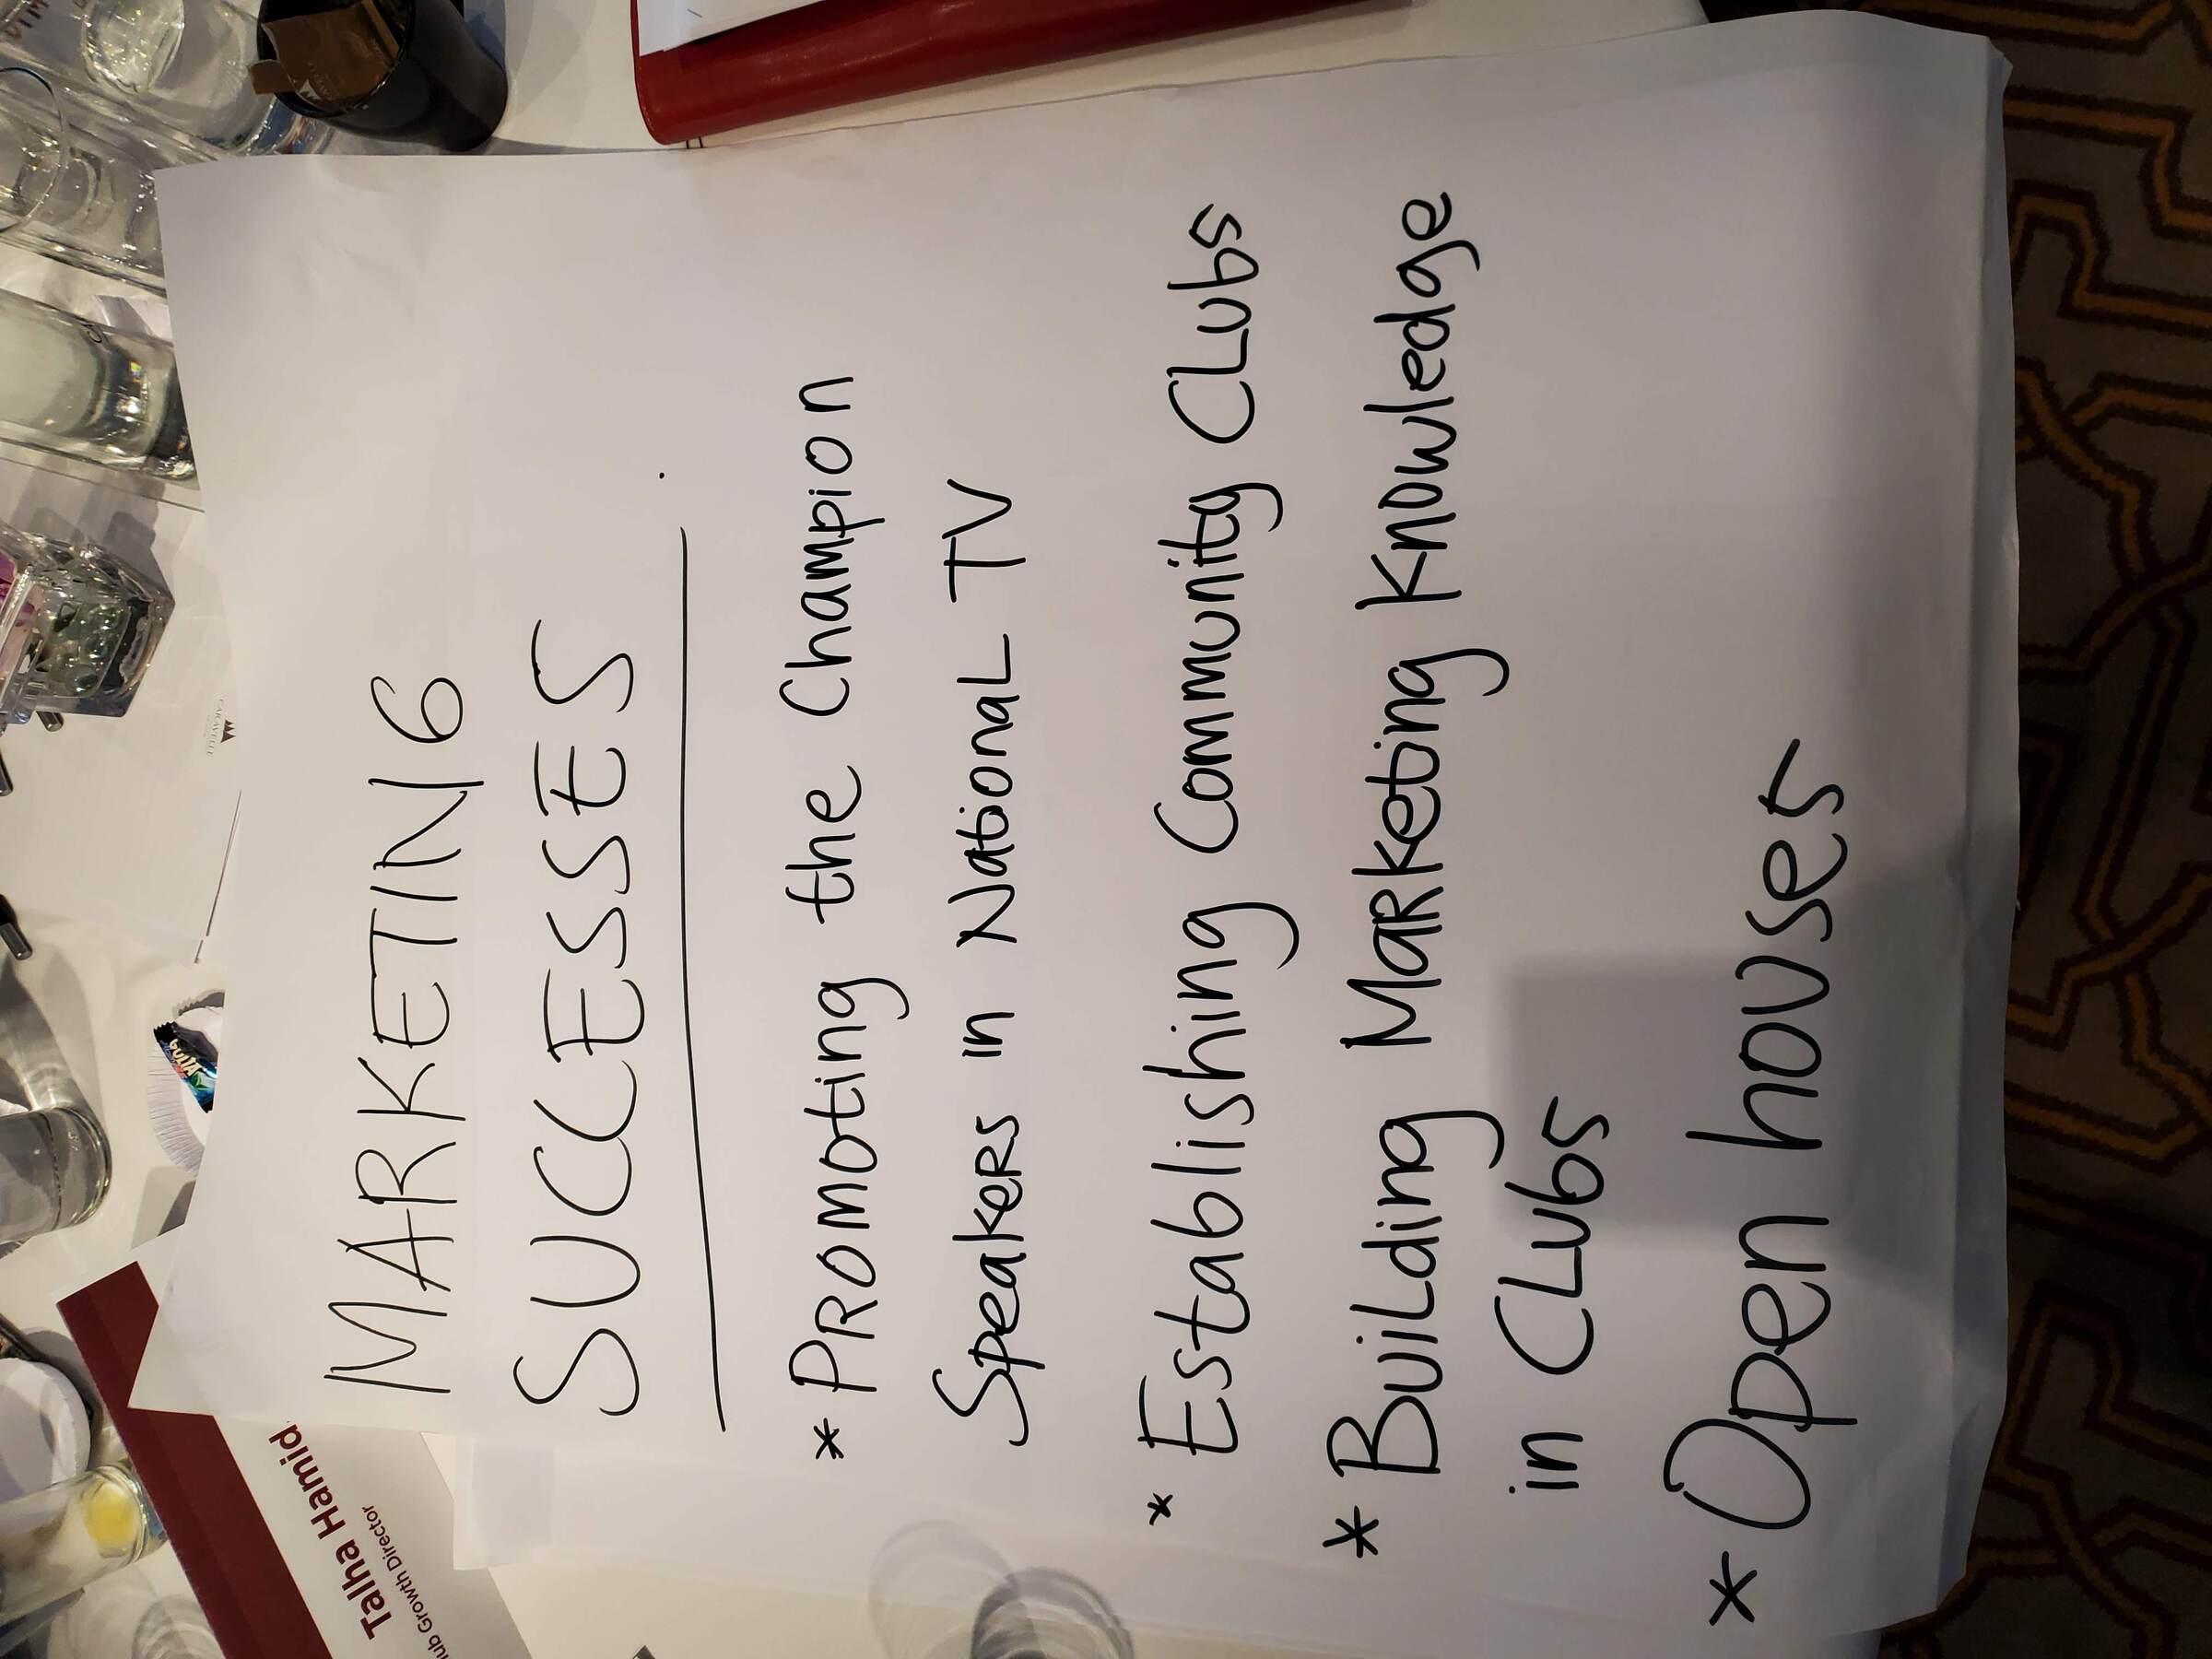 MARKETING
SUCCESSES
* Promoting the Champion
Speakers in National TV
* Establishing Community Clubs
* Building Marketing Knowledge
in Clubs
* Open houses
Talha Hamid
Growth Director
CARAVELLE